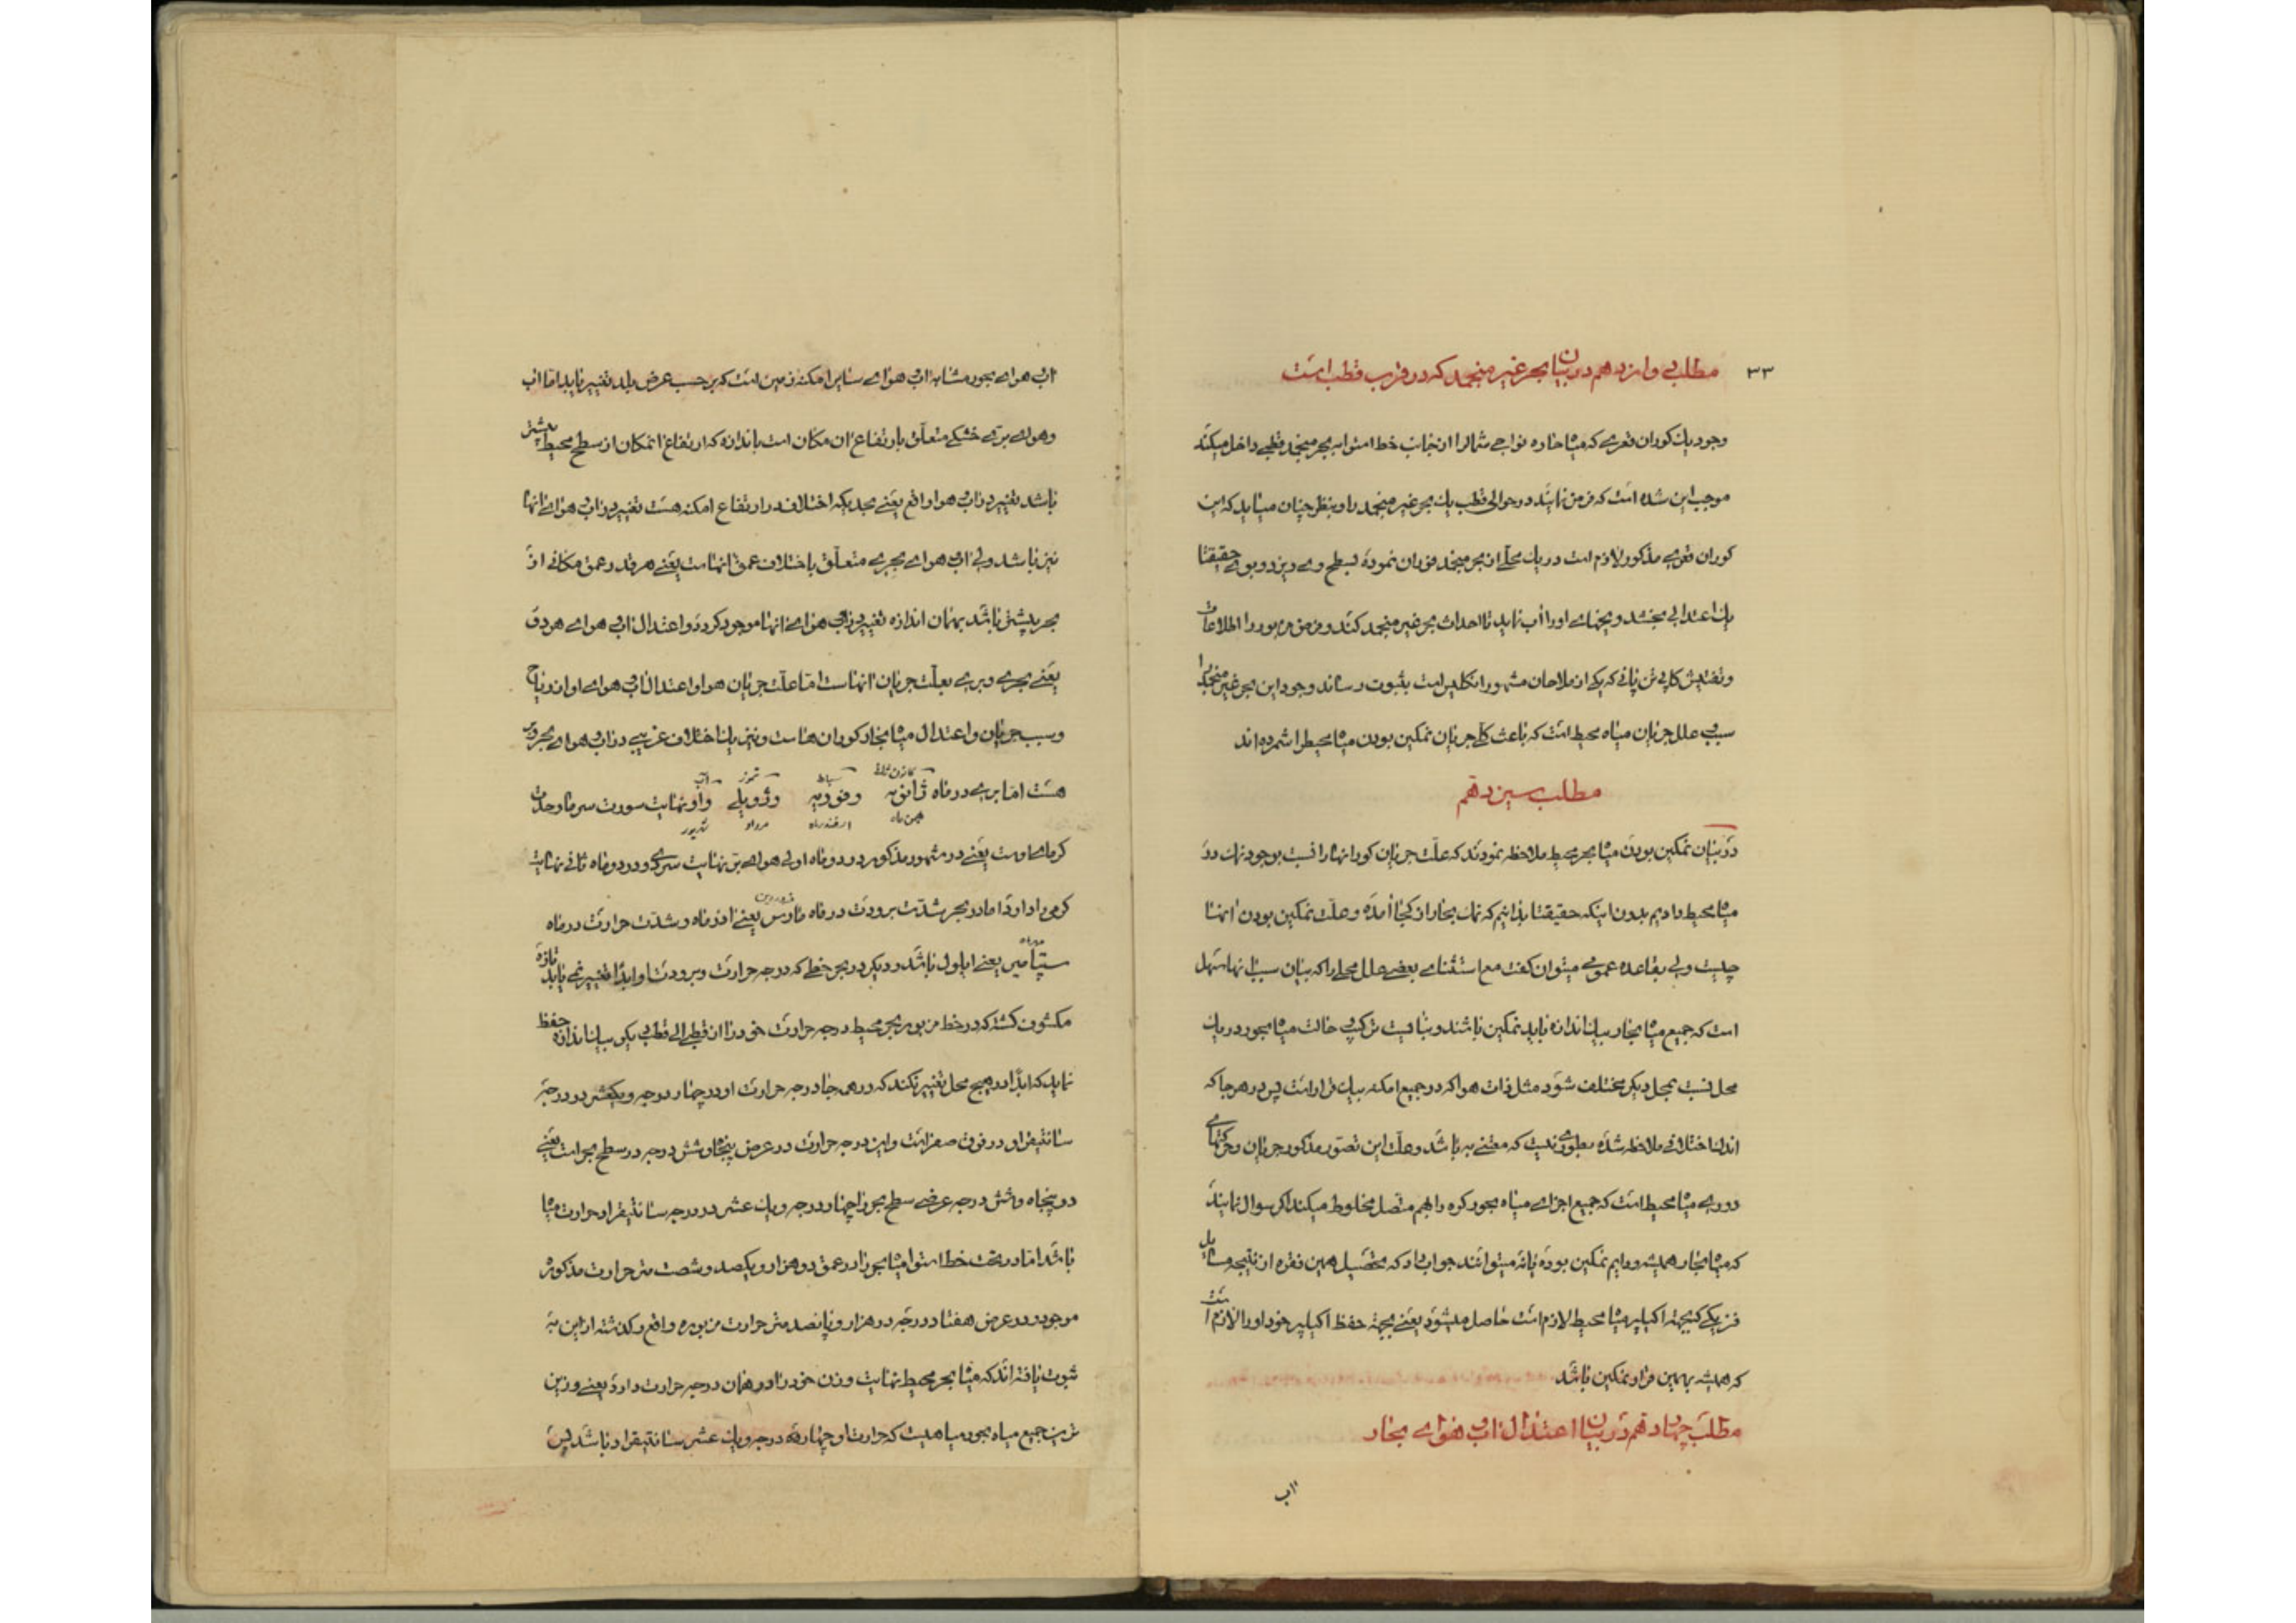 ۳۳ مطلب دوازدهم در بیان بحر غیر منجمد که در قرب قطب است
وجود یک کوران قعری که میاه حاره نواحی شمال را از جانب خط استوا به بحر منجمد قطبی داخل میکند
موجب این شده است که فرض نمایند در حوالی قطب یک بحر غیر منجمد را و بنظر چنان میاید که این
کوران قعری مذکور لازم است در یک محلی از بحر منجمد فوران نموده بسطح وی ریزد و بوی حقیقتا
یک اعتدالی بخشد و یخهای او را آب نماید تا احداث بحر غیر منجمد کند و فرض مزبور را اطلاعات
و تفتیش کاپی تن پانی که یکی از ملاحان مشهور انگلیس است بثبوت رساند وجود این بحر غیر منجمد را
سببی علل جریان میاه محیط است که باعث کلی جریان نمکین بودن میاه محیط را شمرده اند
مطلب سیزدهم
در بیان نمکین بودن میاه بحر محیط ملاحظه نمودند که علت جریان کورانها را نسبت بوجود نمک در
میاه محیط دادیم بدون اینکه حقیقتا بدانیم که نمک بحار از کجا آمده و علت نمکین بودن آنها
چیست ولی بقاعده عمومی میتوان گفت مع استثنای بعضی علل محلی را که بیان سبب آنها سهل
است که جمیع میاه بحار بیک اندازه باید نمکین باشند و بثابت ترکیبی حالت میاه بحور در یک
محل نسبت بمحل دیگر مختلف شود مثل ذات هوا که در جمیع امکنه بیک قرار است پس در هر جا که
اندک اختلافی ملاحظه شده بطوری نیست که معتنی به باشد و علت این تصور مذکور جریان و حرکتهای
دوریه میاه محیط است که جمیع اجزای میاه بحور کره را بهم متصل مخلوط میکند اگر سوال نمایند
که میاه بحار همیشه و دایم نمکین بوده یا نه میتوانند جواب داد که محصل همین فقره از نتیجه مسایل
فزیکی که بجهة اکیلیبر میاه محیط لازم است حاصل میشود یعنی بجهة حفظ اکیلیبر خود او را لازم است
که همیشه بهمین قرار نمکین باشد
مطلب چهاردهم در بیان اعتدال آب و هوای بحار
آب
آب هوای بحور مشابه آب هوای سایر امکنه زمین است که بر حسب عرض بلد تغییر نماید اما آب
و هوای بری خشکی متعلق بارتفاع آن مکان است باندازه که ارتفاع آنمکان از سطح محیط بیشتر
باشد تغییر در آب هوا واقع یعنی بحدیکه اختلاف در ارتفاع امکنه هست تغییر در آب هوای آنها
نیز باشد ولی آب هوای بحری متعلق باختلاف عمق آنهاست یعنی هر قدر عمق مکانی از
بحر بیشتر باشد بهمان اندازه تغییر در آب هوای آنها موجود کردد و اعتدال آب هوای هر دو
یعنی بحری و بری بعلت جریان آنهاست اما علت جریان هوا و اعتدال آب هوای او از ریاح
و سبب جریان و اعتدال میاه بحار کوران هاست و نیز یک اختلاف غریبی در آب هوای بحر و بر
کانون ثانی سباط تموز آب
هست اما بری در ماه ژانویه و فوریه و ژویلی و اوت نهایت سورت سرما و حدت
بهمن ماه اسفندماه مرداد شهریور
گرمای اوست یعنی در شهور مذکور در دو ماه اولی هوای بر نهایت سردی و در دو ماه ثانی نهایت
فروردین
گرمی را دارد اما در بحر شدت برودت در ماه مارس یعنی آذر ماه و شدت حرارت در ماه
مهرماه
سپتامبر یعنی ایلول باشد و دیگر در بحر خطی که درجه حرارت و برودت او ابدا تغییر نمی یابد تازه
مکشوف گشته که در خط مزبور بحر محیط درجه حرارت خود را از قطب الی قطب دیگر بیک اندازه حفظ
نماید که ابدا در هیچ محل تغییر نکند که در همه جا درجه حرارت او در چهار درجه و یکعشر در درجه
سانتیقراد در فوق صفر است و این درجه حرارت در عرض پنجاه و شش درجه در سطح بحر است یعنی
در پنجاه و شش درجه عرضی سطح بحر را چهار درجه و یک عشر در درجه سانتیقراد حرارت میاه
باشد اما در تحت خط استوا میاه بحور را در عمق دو هزار و یکصد و شصت متر حرارت مذکوره
موجود و در عرض هفتاد درجه در هزار و پانصد متر حرارت مزبوره واقع و گذشته از این به
ثبوت یافته اند که میاه بحر محیط نهایت وزن خود را در همان درجه حرارت دارد یعنی وزین
ترین جمیع میاه بحور میاهیست که حرارت او چهار درجه و یک عشر سانتیقراد باشد پس